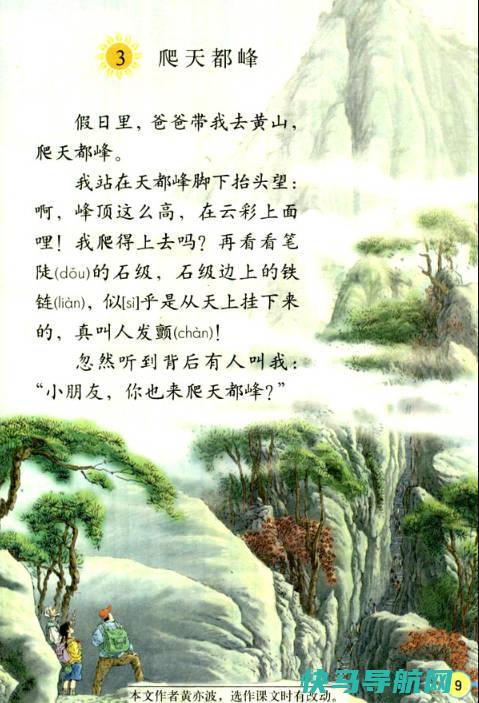 3 爬天都峰
假日里，爸爸带我去黄山，
爬天都峰。
我站在天都峰脚下抬头望：
啊，峰顶这么高，在云彩上面
哩！我爬得上去吗？再看看笔
陡(dǒu)的石级，石级边上的铁
链(liàn)，似[sì]乎是从天上挂下来
的，真叫人发颤(chàn)！
忽然听到背后有人叫我：
“小朋友，你也来爬天都峰？”
快马导航网
9
本文作者黄亦波，选作课文时有改动。